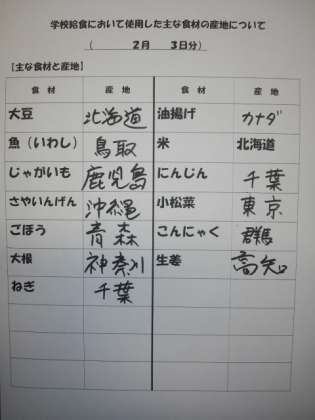 学校給食において使用した主な食材の産地について
( 2月 3日分)
【主な食材と産地】
食 材 産 地 食 材 産 地
大豆 北海道 油揚げ カナダ
魚(いわし) 鳥取 米 北海道
じゃがいも 鹿児島 にんじん 千葉
さやいんげん 沖縄 小松菜 東京
ごぼう 青森 こんにゃく 群馬
大根 神奈川 生姜 高知
ねぎ 千葉